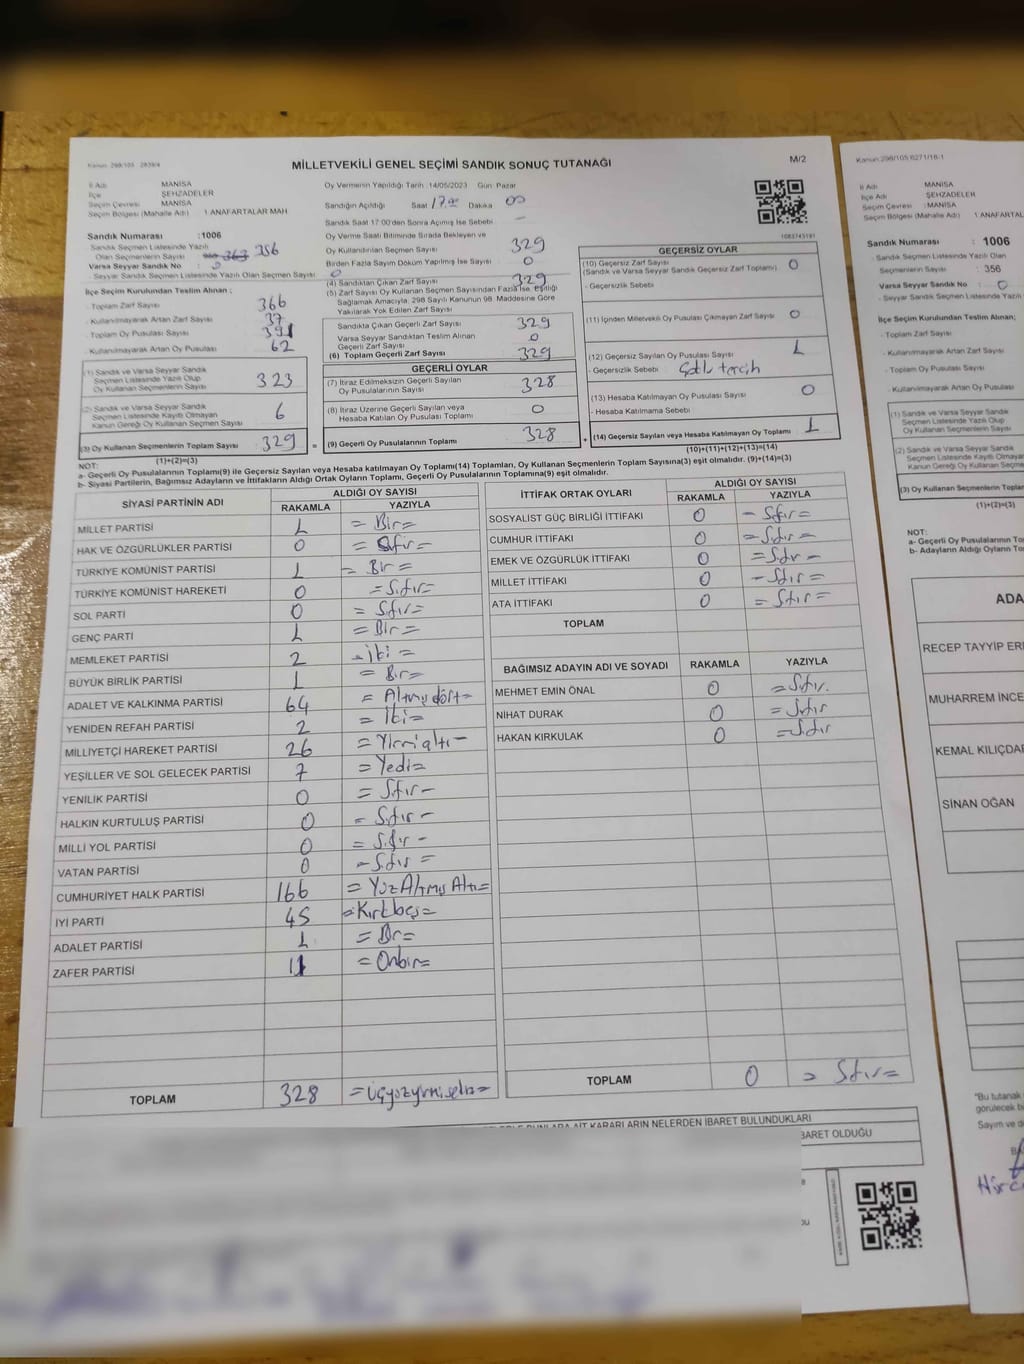 Kanun: 298/105 2839/4
MİLLETVEKİLİ GENEL SEÇİMİ SANDIK SONUÇ TUTANAĞI
M/2
İl Adı MANİSA
İlçe ŞEHZADELER
Seçim Çevresi MANİSA
Seçim Bölgesi (Mahalle Adı) 1 ANAFARTALAR MAH
Sandık Numarası :1006
Sandık Seçmen Listesinde Yazılı
Olan Seçmenlerin Sayısı 363 356
Varsa Seyyar Sandık No 0
- Seyyar Sandık Seçmen Listesinde Yazılı Olan Seçmen Sayısı: 0
İlçe Seçim Kurulundan Teslim Alınan ;
- Toplam Zarf Sayısı 366
- Kullanılmayarak Artan Zarf Sayısı 37
- Toplam Oy Pusulası Sayısı 391
- Kullanılmayarak Artan Oy Pusulası 62
(1) Sandık ve Varsa Seyyar Sandık
Seçmen Listesinde Yazılı Olup
Oy Kullanan Seçmenlerin Sayısı 323
(2) Sandık ve Varsa Seyyar Sandık
Seçmen Listesinde Kayıtlı Olmayan
Kanun Gereği Oy Kullanan Seçmen Sayısı 6
(3) Oy Kullanan Seçmenlerin Toplam Sayısı 329
(1)+(2)=(3)
Oy Vermenin Yapıldığı Tarih :14/05/2023 Gün: Pazar
Sandığın Açıldığı Saat 17.00 Dakika 00
Sandık Saat 17:00'den Sonra Açılmış İse Sebebi —
Oy Verme Saati Bitiminde Sırada Bekleyen ve
Oy Kullandırılan Seçmen Sayısı 329
Birden Fazla Sayım Döküm Yapılmış İse Sayısı 0
(4) Sandıktan Çıkan Zarf Sayısı 329
(5) Zarf Sayısı Oy Kullanan Seçmen Sayısından Fazla İse Eşitliği
Sağlamak Amacıyla, 298 Sayılı Kanunun 98. Maddesine Göre
Yakılarak Yok Edilen Zarf Sayısı
Sandıkta Çıkan Geçerli Zarf Sayısı 329
Varsa Seyyar Sandıktan Teslim Alınan
Geçerli Zarf Sayısı 0
(6) Toplam Geçerli Zarf Sayısı 329
GEÇERLİ OYLAR
(7) İtiraz Edilmeksizin Geçerli Sayılan
Oy Pusulalarının Sayısı 328
(8) İtiraz Üzerine Geçerli Sayılan veya
Hesaba Katılan Oy Pusulası Toplamı 0
= (9) Geçerli Oy Pusulalarının Toplamı 328
1083745191
GEÇERSİZ OYLAR
(10) Geçersiz Zarf Sayısı 0
(Sandık ve Varsa Seyyar Sandık Geçersiz Zarf Toplamı)
- Geçersizlik Sebebi
(11) İçinden Milletvekili Oy Pusulası Çıkmayan Zarf Sayısı 0
(12) Geçersiz Sayılan Oy Pusulası Sayısı 1
- Geçersizlik Sebebi tercih
(13) Hesaba Katılmayan Oy Pusulası Sayısı 0
- Hesaba Katılmama Sebebi
+ (14) Geçersiz Sayılan veya Hesaba Katılmayan Oy Toplamı 1
(10)+(11)+(12)+(13)=(14)
NOT:
a- Geçerli Oy Pusulalarının Toplamı(9) ile Geçersiz Sayılan veya Hesaba katılmayan Oy Toplamı(14) Toplamları, Oy Kullanan Seçmenlerin Toplam Sayısına(3) eşit olmalıdır. (9)+(14)=(3)
b- Siyasi Partilerin, Bağımsız Adayların ve İttifakların Aldığı Ortak Oyların Toplamı, Geçerli Oy Pusulalarının Toplamına(9) eşit olmalıdır.
SİYASİ PARTİNİN ADI ALDIĞI OY SAYISI
RAKAMLA YAZIYLA
MİLLET PARTİSİ 1 = Bir=
HAK VE ÖZGÜRLÜKLER PARTİSİ 0 = Sıfır=
TÜRKİYE KOMÜNİST PARTİSİ 1 = Bir =
TÜRKİYE KOMÜNİST HAREKETİ 0 = Sıfır=
SOL PARTİ 0 = Sıfır=
GENÇ PARTİ 1 = Bir =
MEMLEKET PARTİSİ 2 = İki =
BÜYÜK BİRLİK PARTİSİ 1 = Bir=
ADALET VE KALKINMA PARTİSİ 64 = Altmışdört=
YENİDEN REFAH PARTİSİ 2 = İki=
MİLLİYETÇİ HAREKET PARTİSİ 26 = Yirmialtı=
YEŞİLLER VE SOL GELECEK PARTİSİ 7 = Yedi=
YENİLİK PARTİSİ 0 = Sıfır=
HALKIN KURTULUŞ PARTİSİ 0 = Sıfır=
MİLLİ YOL PARTİSİ 0 = Sıfır=
VATAN PARTİSİ 0 = Sıfır =
CUMHURİYET HALK PARTİSİ 166 = YüzAltmışAltı=
İYİ PARTİ 45 =Kırkbeş=
ADALET PARTİSİ 1 = Bir=
ZAFER PARTİSİ 11 = Onbir=
TOPLAM 328 =Üçyüzyirmisekiz=
İTTİFAK ORTAK OYLARI ALDIĞI OY SAYISI
RAKAMLA YAZIYLA
SOSYALİST GÜÇ BİRLİĞİ İTTİFAKI 0 = Sıfır=
CUMHUR İTTİFAKI 0 = Sıfır =
EMEK VE ÖZGÜRLÜK İTTİFAKI 0 = Sıfır =
MİLLET İTTİFAKI 0 = Sıfır =
ATA İTTİFAKI 0 = Sıfır =
TOPLAM
BAĞIMSIZ ADAYIN ADI VE SOYADI RAKAMLA YAZIYLA
MEHMET EMİN ÖNAL 0 = Sıfır.
NİHAT DURAK 0 = Sıfır
HAKAN KIRKULAK 0 = Sıfır
TOPLAM 0 = Sıfır=
KARARLARIN NELERDEN İBARET BULUNDUKLARI
BARET OLDUĞU
Kanun:298/105 6271/16-1
İl Adı : MANİSA
İlçe : ŞEHZADELER
Seçim Çevresi : MANİSA
Seçim Bölgesi (Mahalle Adı) : 1 ANAFARTAL
Sandık Numarası : 1006
- Sandık Seçmen Listesinde Yazılı Olan
Seçmenlerin Sayısı : 356
Varsa Seyyar Sandık No : 0
- Seyyar Sandık Seçmen Listesinde Yazılı
İlçe Seçim Kurulundan Teslim Alınan;
- Toplam Zarf Sayısı
- Kullanılmayarak Artan Zarf Sayısı
- Toplam Oy Pusulası Sayısı
- Kullanılmayarak Artan Oy Pusulası
(1) Sandık ve Varsa Seyyar Sandık
Seçmen Listesinde Yazılı Olup
Oy Kullanan Seçmenlerin Sayısı
(2) Sandık ve Varsa Seyyar Sandık
Seçmen Listesinde Kayıtlı Olmayan
Kanun Gereği Oy Kullanan Seçme
(3) Oy Kullanan Seçmenlerin Toplam
(1)+(2)=(3)
NOT:
a- Geçerli Oy Pusulalarının To
b- Adayların Aldığı Oyların To
ADA
RECEP TAYYİP ER
MUHARREM İNCE
KEMAL KILIÇDAR
SİNAN OĞAN
"Bu tutanak
görülecek b
Sayım ve d